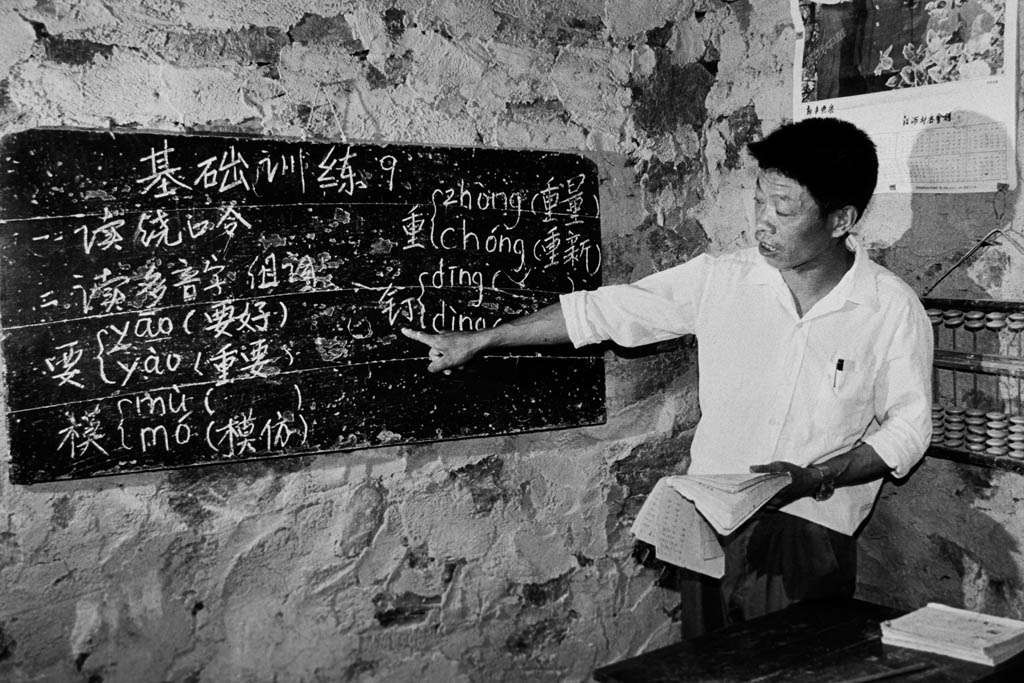 基础训练9
一:读绕口令
二:读多音字 组词
要{yāo(要好)
yào(重要)
模{mú( )
mó(模仿)
重{zhòng(重量)
chóng(重新)
钉{dīng( )
dìng(